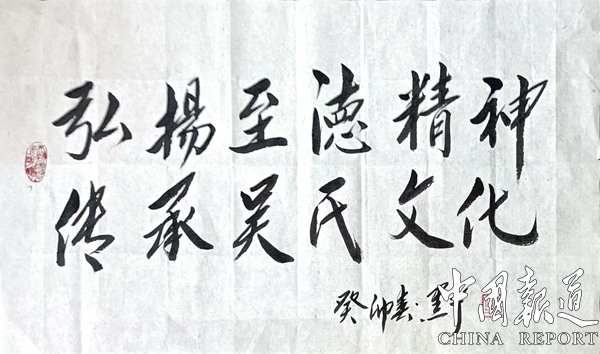 弘揚至德精神
传承吴氏文化
癸卯春
中国报道
CHINA REPORT